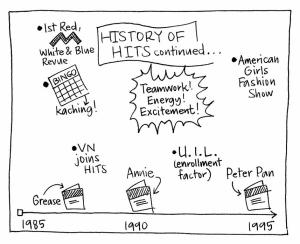 HISTORY OF
HITS continued...
• 1st Red,
White & Blue
Revue
BINGO
kaching!
Teamwork!
Energy!
Excitement!
• American
Girls
Fashion
Show
• VN
joins
HITS
Grease
Annie
• U.I.L.
(enrollment
factor)
Peter Pan
1985
1990
1995